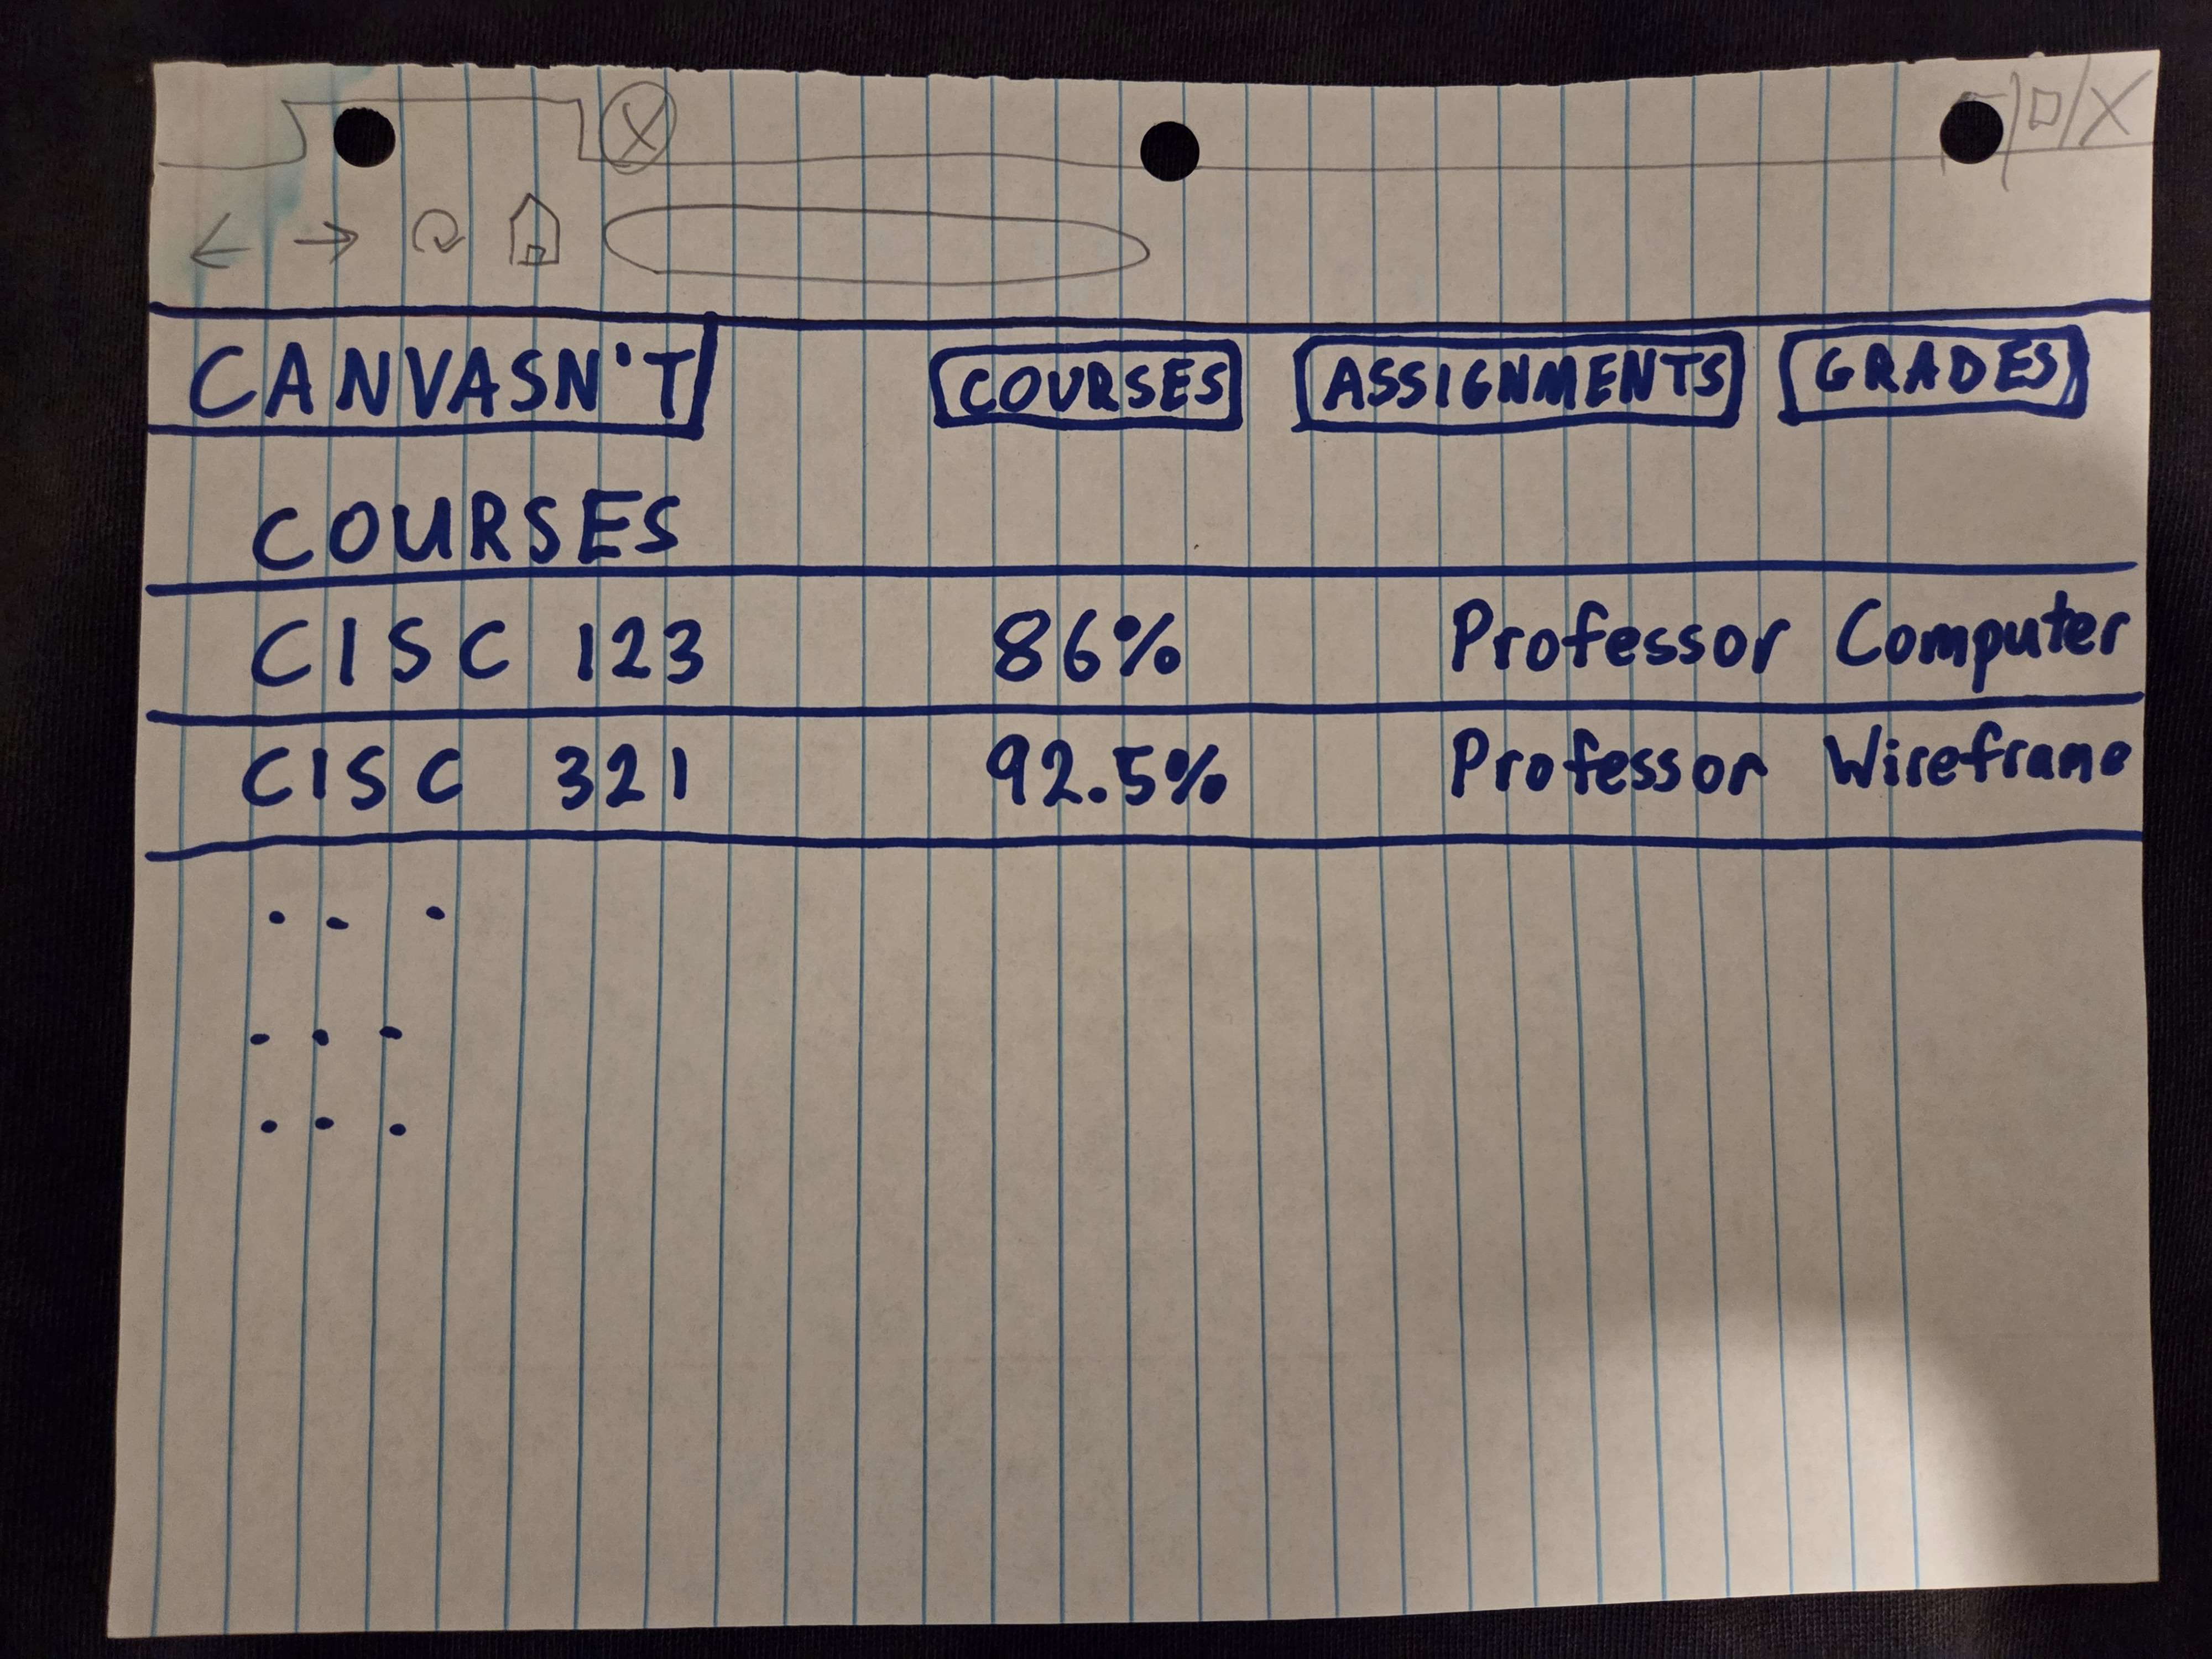 CANVASN'T COURSES ASSIGNMENTS GRADES
COURSES
CISC 123 86% Professor Computer
CISC 321 92.5% Professor Wireframe
. . .
. . .
. . .